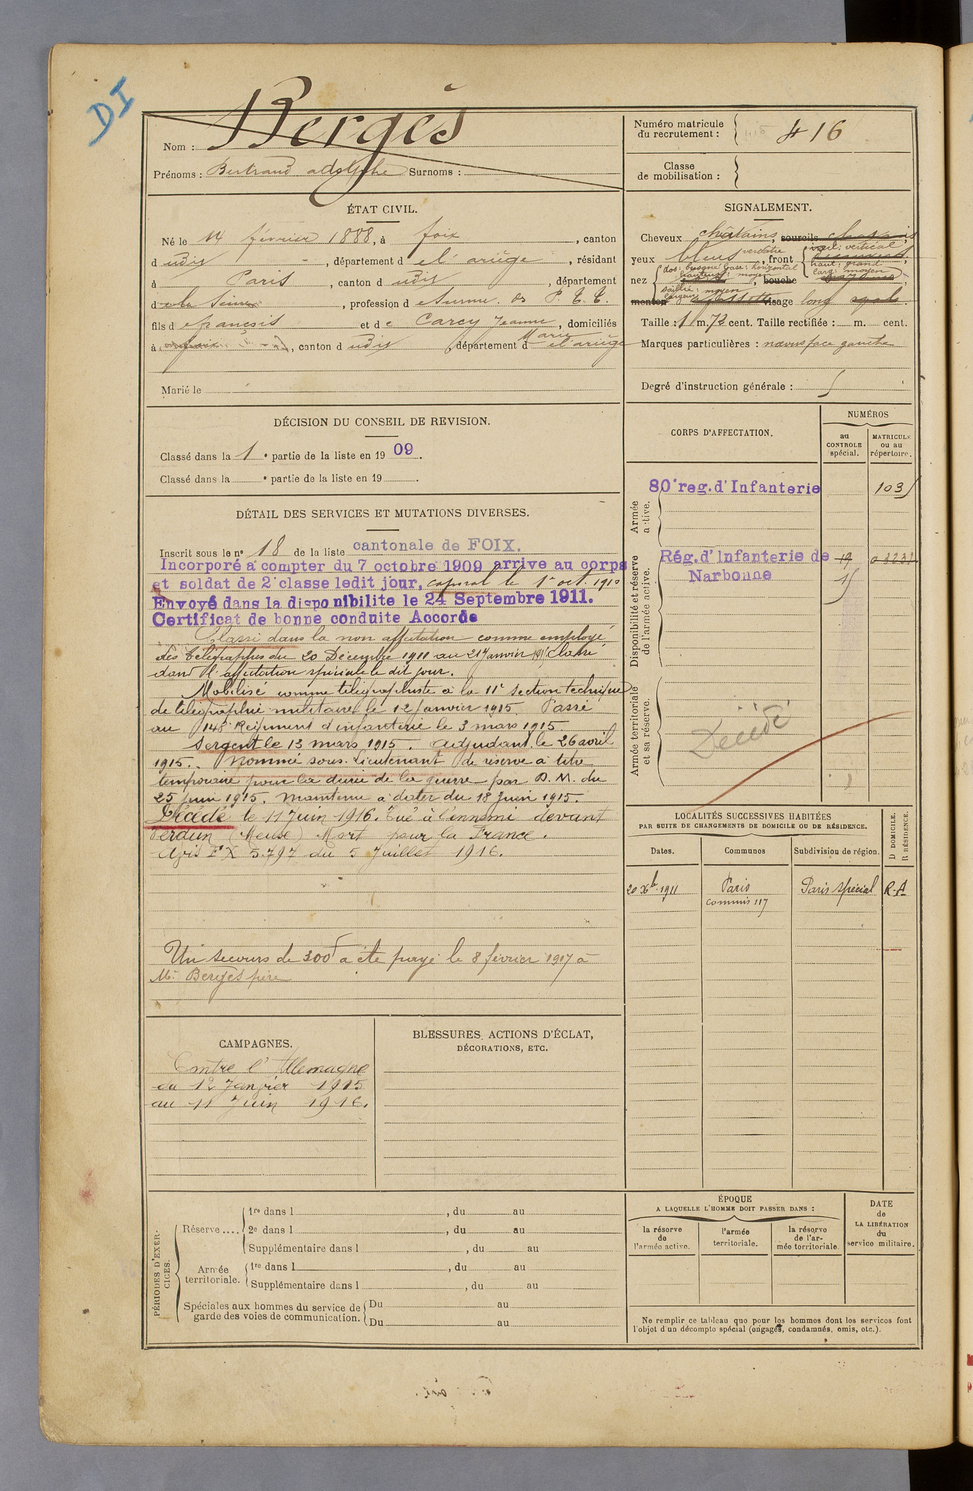 DI
Nom : Bergès
Prénoms : Bertrand Adolphe Surnoms :
Numéro matricule
du recrutement : 416
Classe
de mobilisation :
ÉTAT CIVIL.
Né le 14 février 1888, à foix, canton
d udit, département d el'ariège, résidant
à Paris, canton d udit, département
d e la Seine, profession d
fils d e françois et de Carcy Jeanne Marie, domiciliés
à, canton d udit, département d el'ariège
Marié le
SIGNALEMENT.
Cheveux châtains, sourcils
yeux bleus, front
nez, bouche
menton visage long
Taille : 1 m. 72 cent. Taille rectifiée : m. cent.
Marques particulières : nævus face gauche
Degré d'instruction générale :
DÉCISION DU CONSEIL DE REVISION.
Classé dans la 1e partie de la liste en 1909.
Classé dans la e partie de la liste en 19
DÉTAIL DES SERVICES ET MUTATIONS DIVERSES.
Inscrit sous le n° 18 de la liste cantonale de FOIX.
Incorporé à compter du 7 octobre 1909 arrive au corps
et soldat de 2e classe ledit jour, caporal le 1er oct. 1910
Envoyé dans la disponibilite le 24 Septembre 1911.
Certificat de bonne conduite Accordé
Classé dans la non affectation comme employé
des télégraphes du 20 Décembre 1911 au 21 janvier 1915 classé
dans l'affectation spéciale le dit jour.
Mobilisé comme télégraphiste à la 11e section technique
de télégraphie militaire le 12 Janvier 1915 Passé
au 148e Régiment d'infanterie le 3 mars 1915.
Sergent le 13 mars 1915. adjudant le 26 avril
1915. Nommé sous-lieutenant de réserve à titre
temporaire pour la durée de la guerre par D. M. du
25 juin 1915. Maintenu à dater du 18 Juin 1915.
Décédé le 11 Juin 1916. Tué à l'ennemi devant
Verdun (Meuse) Mort pour la France.
Avis FX 5.797 du 5 Juillet 1916.
Un secours de 300f a été payé le 8 février 1917 à
Mr Bergès père
CORPS D'AFFECTATION.
NUMÉROS
au
CONTROLE
spécial.
MATRICULE
ou au
répertoire.
Armée
active.
80e reg. d'Infanterie
Disponibilité et réserve
de l'armée active.
Rég. d'Infanterie de
Narbonne
Armée territoriale
et sa réserve.
Décédé
LOCALITÉS SUCCESSIVES HABITÉES
PAR SUITE DE CHANGEMENTS DE DOMICILE OU DE RÉSIDENCE.
D DOMICILE.
R RÉSIDENCE.
Dates. Communes Subdivision de région.
20 Xbre 1911 Paris Paris spécial R-A
commis 117
CAMPAGNES.
Contre l'Allemagne
du 12 Janvier 1915
au 11 Juin 1916.
BLESSURES, ACTIONS D'ÉCLAT,
DÉCORATIONS, ETC.
PÉRIODES D'EXER-
CICES.
Réserve....
1re dans l , du au
2e dans l , du au
Supplémentaire dans l , du au
Armée
territoriale.
1re dans l , du au
Supplémentaire dans l , du au
Spéciales aux hommes du service de
garde des voies de communication.
Du au
Du au
ÉPOQUE
A LAQUELLE L'HOMME DOIT PASSER DANS :
la réserve
de
l'armée active.
l'armée
territoriale.
la réserve
de l'ar-
mée territoriale.
DATE
de
LA LIBÉRATION
du
service militaire.
Ne remplir ce tableau que pour les hommes dont les services font
l'objet d'un décompte spécial (engagés, condamnés, omis, etc.).